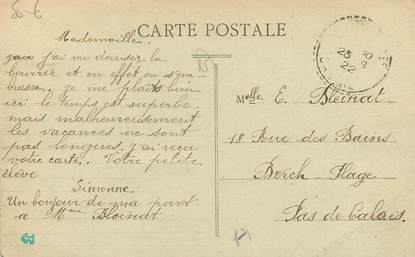 CARTE POSTALE
Mademoiselle,
j'ai vu danser la
bourrée et en effet on s'em-
brasse. Je me plais bien
ici le temps est superbe
mais malheureusement
les vacances ne sont
pas longues. J'ai reçu
votre carte. Votre petite
élève
Simonne.
Un bonjour de ma part
a Mme Bleinat
Melle E. Bleinat
18 Rue des Bains
Berck-Plage
Pas de Calais.
25
22